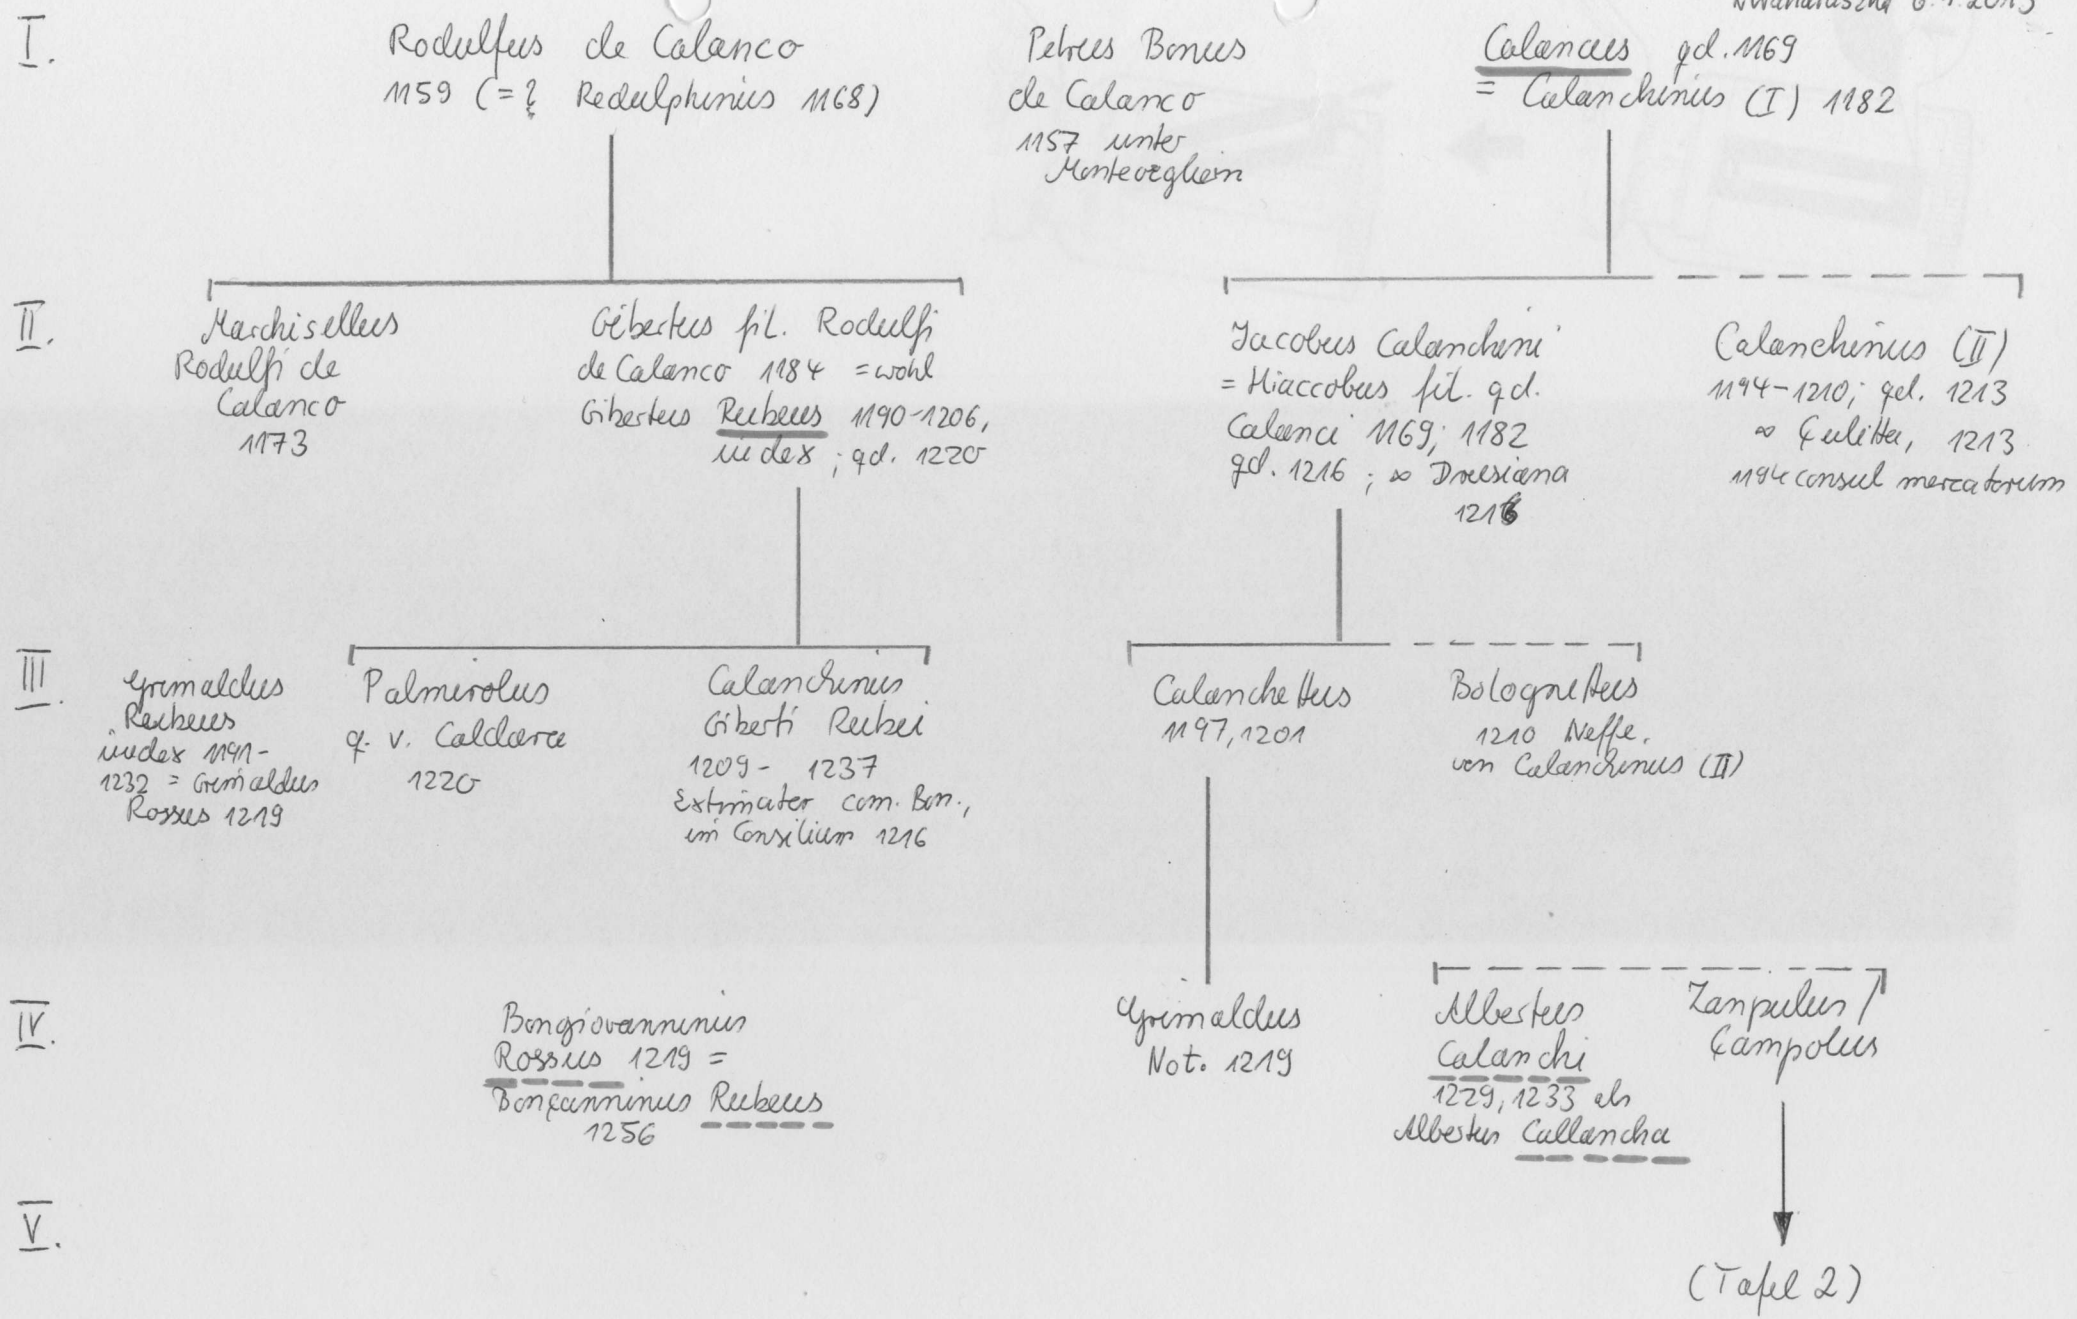 6.1.2013
I.
Rodulfus de Calanco
1159 (=? Redulphinus 1168)
Petrus Bonus
de Calanco
1157 unter
Monteveglium
Calancus qd. 1169
= Calanchinus (I) 1182
II.
Marchisellus
Rodulfi de
Calanco
1173
Gibertus fil. Rodulfi
de Calanco 1184 = wohl
Gibertus Rubeus 1190-1206,
iudex; qd. 1220
Jacobus Calanchini
= Hiaccobus fil. qd.
Calanci 1169; 1182
qd. 1216; ∞ Drusiana
1216
Calanchinus (II)
1194-1210; qd. 1213
∞ Çulitta, 1213
1194 consul mercatorum
III.
Grimaldus
Rubeus
iudex 1191-
1232 = Grimaldus
Rossus 1219
Palmirolus
q. v. Caldara
1220
Calanchinus
Giberti Rubei
1209- 1237
Extimator com. Bon.,
im Consilium 1216
Calanchettus
1197, 1201
Bolognettus
1210 Neffe.
von Calanchinus (II)
IV.
Bongiovanninus
Rossus 1219 =
Bonçanninus Rubeus
1256
Grimaldus
Not. 1219
Albertus
Calanchi
1229, 1233 als
Albertus Callancha
Zanpulus /
Çampolus
V.
(Tafel 2)